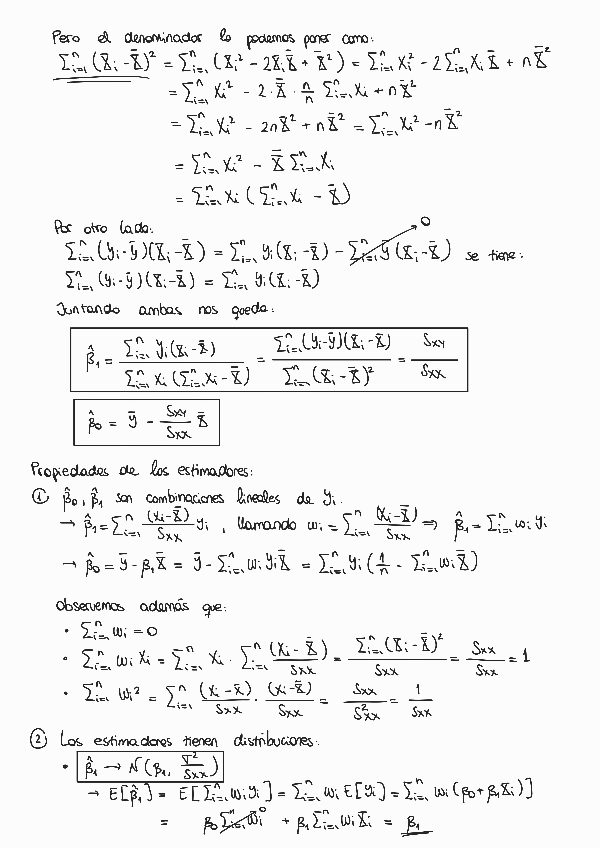 Pero el denominador lo podemos poner como:
∑ᵢ₌₁ⁿ (Xᵢ - X̄)² = ∑ᵢ₌₁ⁿ (Xᵢ² - 2XᵢX̄ + X̄²) = ∑ᵢ₌₁ⁿ Xᵢ² - 2∑ᵢ₌₁ⁿ XᵢX̄ + nX̄²
= ∑ᵢ₌₁ⁿ Xᵢ² - 2·X̄·n/n ∑ᵢ₌₁ⁿ Xᵢ + nX̄²
= ∑ᵢ₌₁ⁿ Xᵢ² - 2nX̄² + nX̄² = ∑ᵢ₌₁ⁿ Xᵢ² - nX̄²
= ∑ᵢ₌₁ⁿ Xᵢ² - X̄ ∑ᵢ₌₁ⁿ Xᵢ
= ∑ᵢ₌₁ⁿ Xᵢ (∑ᵢ₌₁ⁿ Xᵢ - X̄)
Por otro lado:
∑ᵢ₌₁ⁿ (yᵢ - ȳ)(Xᵢ - X̄) = ∑ᵢ₌₁ⁿ yᵢ(Xᵢ - X̄) - ∑ᵢ₌₁ⁿ ȳ(Xᵢ - X̄) → 0 se tiene:
∑ᵢ₌₁ⁿ (yᵢ - ȳ)(Xᵢ - X̄) = ∑ᵢ₌₁ⁿ yᵢ(Xᵢ - X̄)
Juntando ambas nos queda:
β̂₁ = ∑ᵢ₌₁ⁿ yᵢ(Xᵢ - X̄) / ∑ᵢ₌₁ⁿ Xᵢ(∑ᵢ₌₁ⁿ Xᵢ - X̄) = ∑ᵢ₌₁ⁿ (yᵢ - ȳ)(Xᵢ - X̄) / ∑ᵢ₌₁ⁿ (Xᵢ - X̄)² = Sxy / Sxx
β̂₀ = ȳ - Sxy/Sxx X̄
Propiedades de los estimadores:
① β̂₀, β̂₁ son combinaciones lineales de yᵢ.
→ β̂₁ = ∑ᵢ₌₁ⁿ (Xᵢ - X̄)/Sxx yᵢ, llamando wᵢ = ∑ᵢ₌₁ⁿ (Xᵢ - X̄)/Sxx ⇒ β̂₁ = ∑ᵢ₌₁ⁿ wᵢ yᵢ
→ β̂₀ = ȳ - β₁X̄ = ȳ - ∑ᵢ₌₁ⁿ wᵢ yᵢ X̄ = ∑ᵢ₌₁ⁿ yᵢ (1/n - ∑ᵢ₌₁ⁿ wᵢ X̄)
Observemos además que:
• ∑ᵢ₌₁ⁿ wᵢ = 0
• ∑ᵢ₌₁ⁿ wᵢ Xᵢ = ∑ᵢ₌₁ⁿ Xᵢ · ∑ᵢ₌₁ⁿ (Xᵢ - X̄)/Sxx = ∑ᵢ₌₁ⁿ (Xᵢ - X̄)²/Sxx = Sxx/Sxx = 1
• ∑ᵢ₌₁ⁿ wᵢ² = ∑ᵢ₌₁ⁿ (Xᵢ - X̄)/Sxx · (Xᵢ - X̄)/Sxx = Sxx/S²xx = 1/Sxx
② Los estimadores tienen distribuciones:
• β̂₁ → N(β₁, σ²/Sxx)
→ E[β̂₁] = E[∑ᵢ₌₁ⁿ wᵢyᵢ] = ∑ᵢ₌₁ⁿ wᵢ E[yᵢ] = ∑ᵢ₌₁ⁿ wᵢ (β₀ + β₁Xᵢ)]
= β₀ ∑ᵢ₌₁ⁿ wᵢ⁰ + β₁ ∑ᵢ₌₁ⁿ wᵢXᵢ = β₁